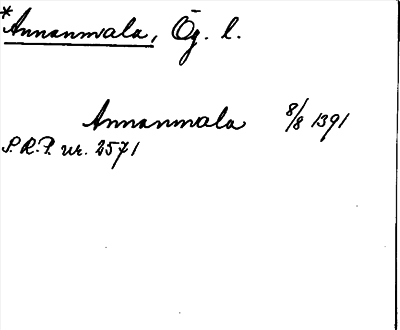 *Annanmala, Ög. l.
Annanmala 8/8 1391
S.R.P. nr. 2571